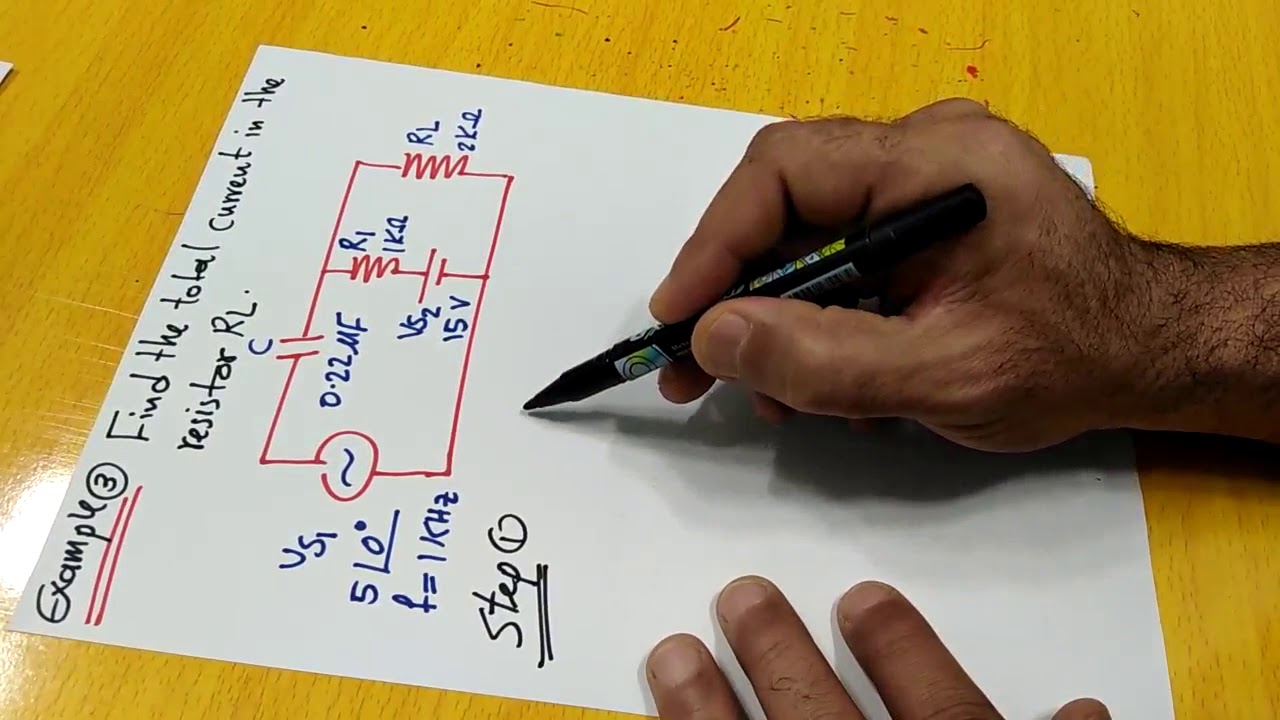 Example ③ Find the total current in the
resistor RL.
C
0.22 µF
R1
1KΩ
RL
2KΩ
VS2
15 V
VS1
5∠0°
f = 1 KHz
~
Step ①